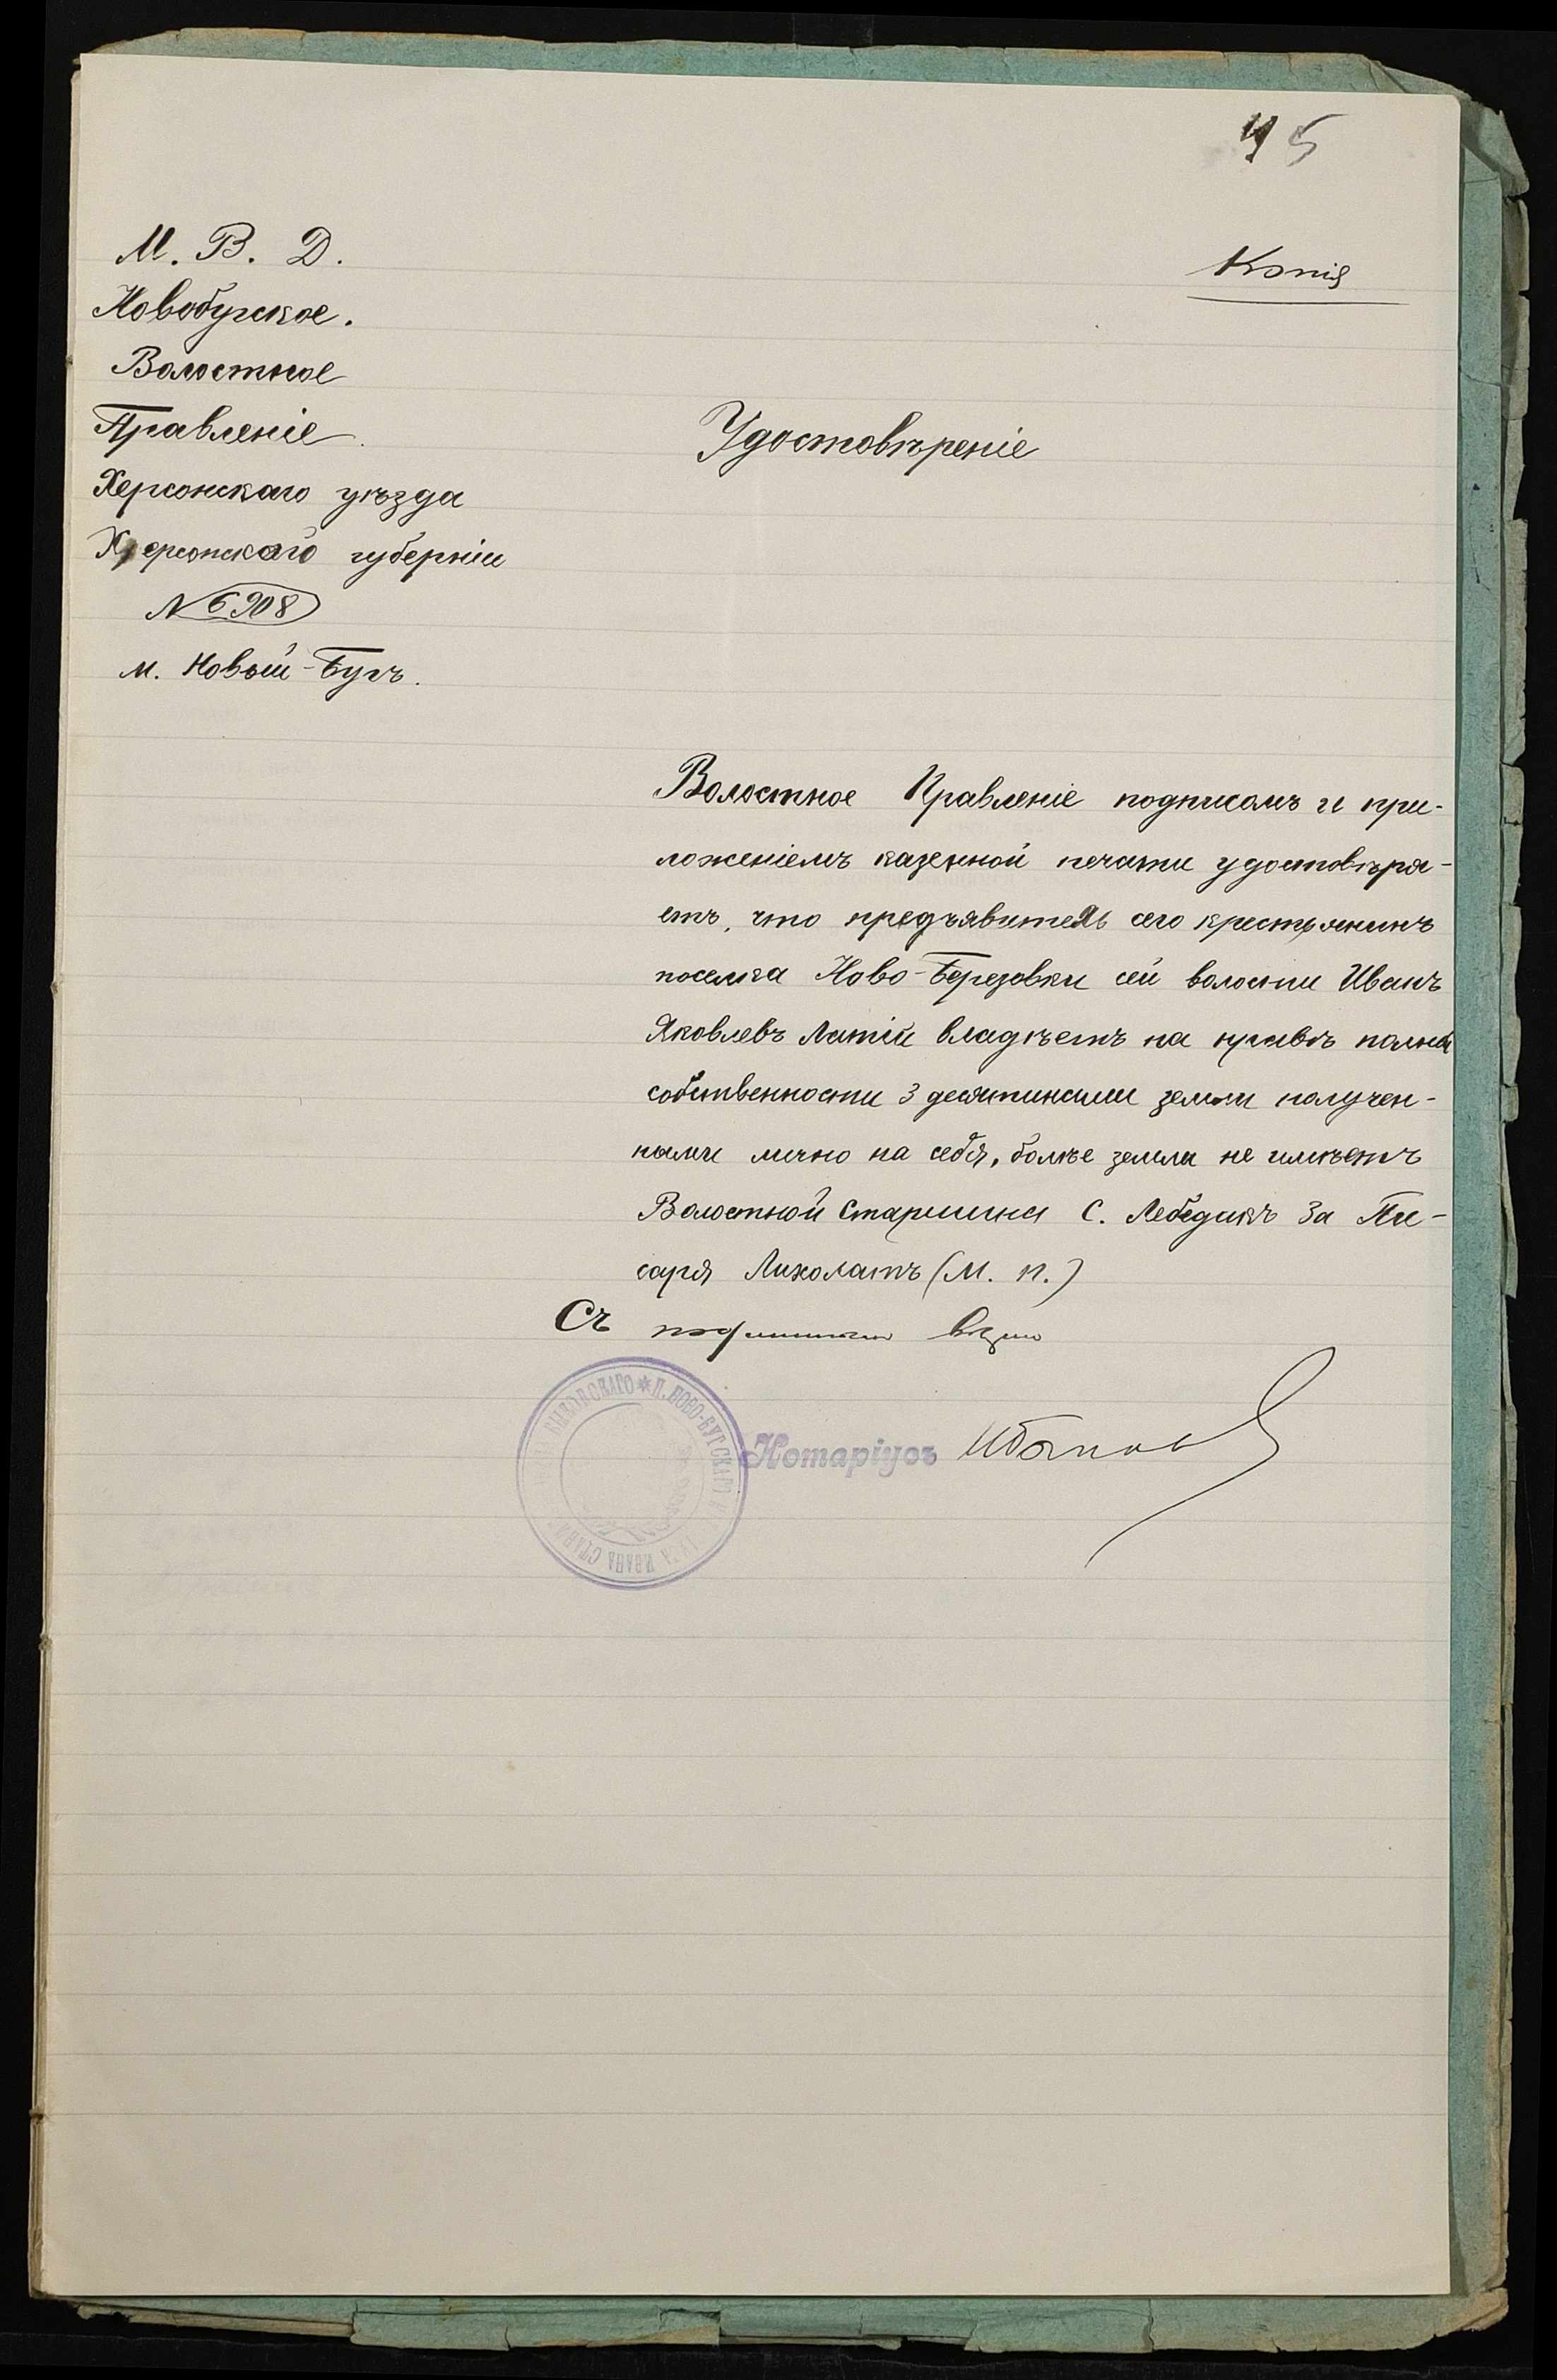 45
М. В. Д.
Новобугское.
Волостное
Правленіе
Херсонскаго уѣзда
Херсонскаго губерніи
№ 6908
м. Новый-Бугъ.
Копія
Удостовѣреніе
Волостное Правленіе подписомъ и при-
ложеніемъ казенной печати удостовѣря-
етъ, что предъявитель сего крестьянинъ
поселка Ново-Березовки сей волости Иванъ
Яковлевъ Латій владѣетъ на правѣ полной
собственности 3 десятинами земли получен-
ными лично на себя, болѣе земли не имѣетъ
Волостной Старшина С. Лебедикъ За Пи-
саря Лихолатъ (М. п.)
Съ подлиннымъ вѣрно
П. НОВО-БУГСКАГО
ИВАНА
Нотаріусъ